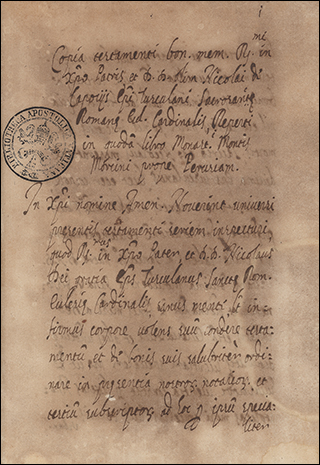 1
Copia testamenti bon. mem. R.mi in
Xpo Patris et D. D. Nicolai de
Capocijs Epi Tusculani Sacrosancte
Romane Ecc. Cardinalis, Reperti
in quodā libro Monarii Montis
Morcini prope Perusiam.
In Xpi nomine Amen. Noverint universi
presentis testamenti seriem inspecturi
quod R.dus in Xpo Pater et D. D. Nicolaus
Dei gratia Eps Tusculanus Sancte Rom.
Ecclesie Cardinalis, sanus mente, et in-
firmus corpore volens suū condere testa-
mentū, et de bonis suis salubriter ordi-
nare in presentia notarioȝ, et
testiū subscriptoȝ ad hoc p. ipsū specia-
liter
BIBLIOTHECA APOSTOLICA VATICANA